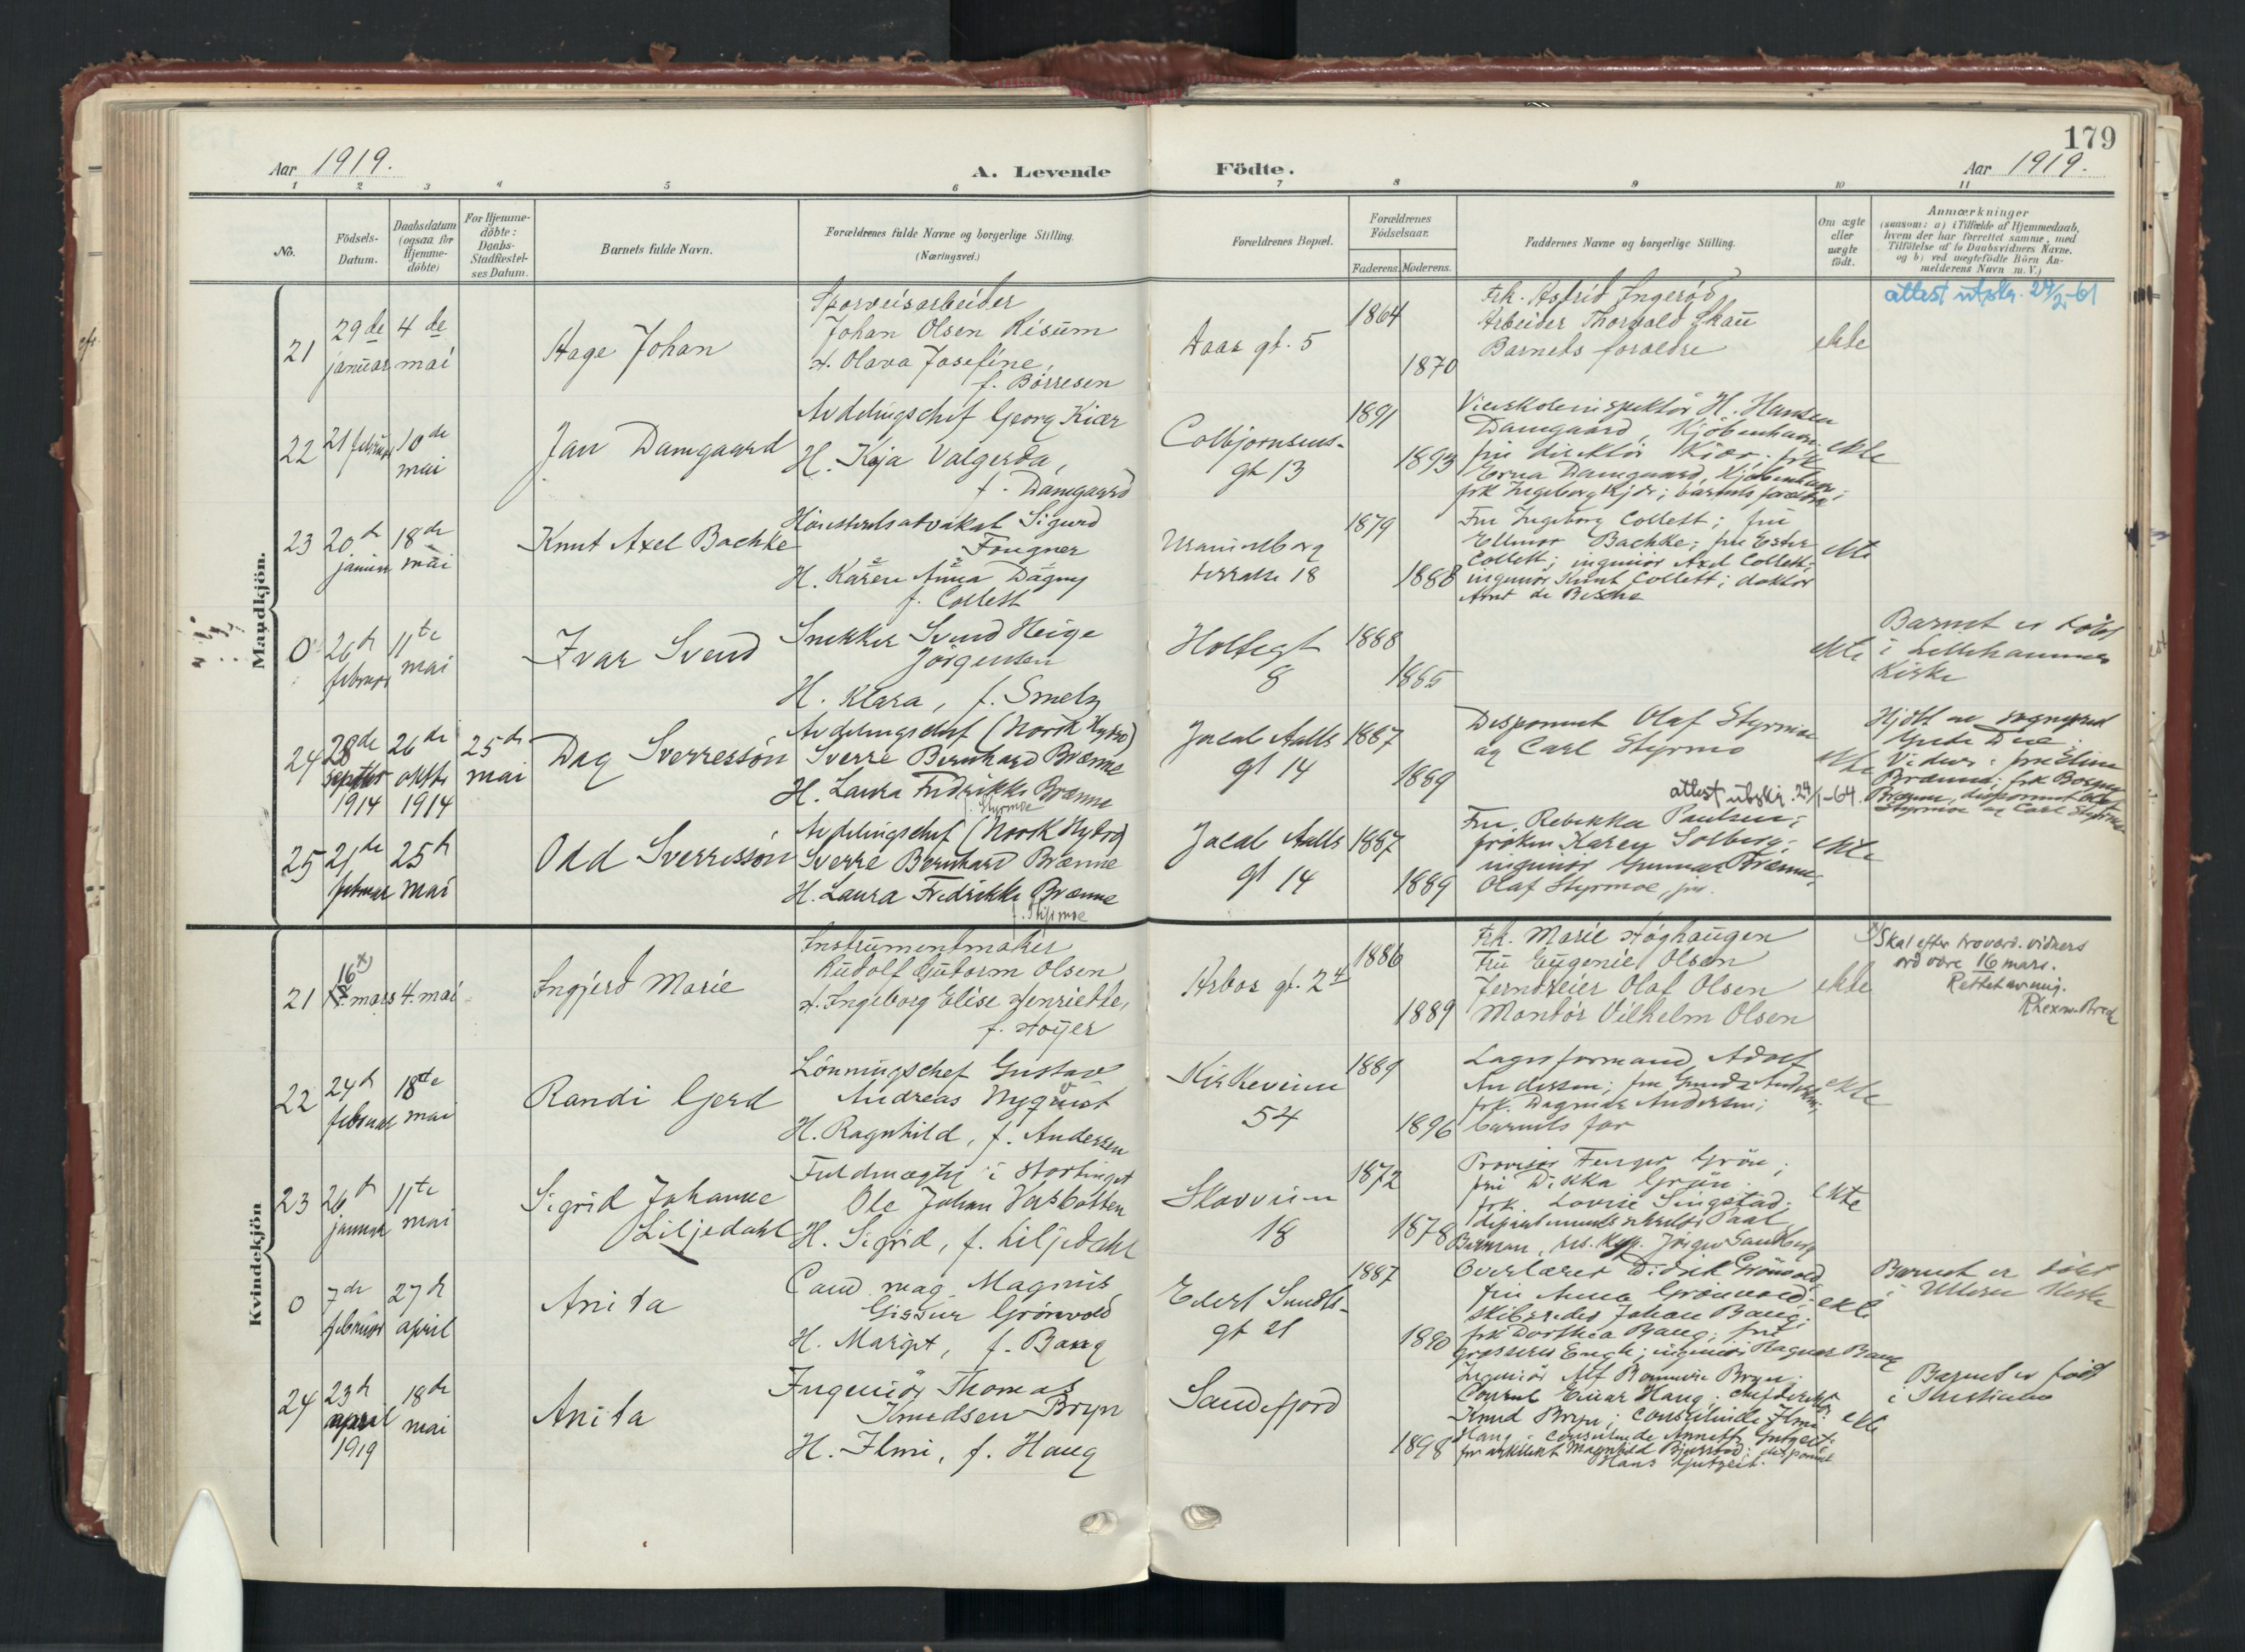 179
Aar 1919.
A. Levende Födte.
Aar 1919.
1 2 3 4 5 6 7 8 9 10 11
No.
Födsels-
Datum.
Daabsdatum
(ogsaa for
Hjemme-
döbte)
For Hjemme-
döbte:
Daabs-
Stadfæstel-
ses Datum.
Barnets fulde Navn.
Forældrenes fulde Navne og borgerlige Stilling.
(Næringsvei.)
Forældrenes Bopæl.
Forældrenes
Födselsaar.
Faderens. Moderens.
Faddernes Navne og borgerlige Stilling.
Om ægte
eller
uægte
født.
Anmærkninger
(saasom: a) i Tilfælde af Hjemmedaab,
hvem der har forrettet samme, med
Tilföielse af to Daabsvidners Navne.
og b) ved uægtefödte Börn An-
melderens Navn m. V.)
Mandkjön.
21
29de januar
4de mai
Hage Johan
Sporveisarbeider
Johan Olsen Kisum
H. Olava Josefine,
f. Börresen
Daas gt. 5
1864
1870
Frk. Astrid Ingeröd
Arbeider Thorvald Skau
Barnets forældre
ekte
attest utskr. 24/2-61
22
21 februar
10de mai
Jan Damgaard
Avdelingschef Georg Kiær
H. Kaja Valgerda,
f. Damgaard
Colbjørnsens-
gt 13
1891
1893
H. Hansen
Damgaard, Kjöbenhavn
fru direktör Kiær; frk
Erna Damgaard, Kjöbenhavn;
frk Ingeborg barnets forældre
ekte
23
20de januar
18de mai
Knut Axel Bachke
Höiesteretsadvokat Sigurd
Fougner
H. Karen Anna Dagny
f. Collett
Uranienborg
terrasse 18
1879
1888
Fru Ingeborg Collett; fru
Ellinor Bachke; fru Ester
Collett; ingeniör Axel Collett;
ingeniör Knut Collett; doktor
Arnt de Besche
ekte
0
26de februar
11te mai
Ivar Svend
Snekker Svend Heige
Jörgensen
H. Klara, f. Smeby
Holtegt
8
1888
1885
ekte
Barnet er döbt
i Lillehammer
Kirke
24
28de septbr 1914
26de oktbr 1914
25de mai
Dag Sverressön
Avdelingschef (Norsk Hydro)
Sverre Bernhard Brænne
H. Laura Fredrikke Brænne
f. Styrmoe
Jacob Aalls
gt 14
1887
1889
Disponent Olaf Styrmoe
og Carl Styrmo
ekte
Hjdbt av sogneprest
Due.
Vidner: fru Eline
Brænne; frk Borgny
Brænne, disponent Olaf
Styrmoe og Carl Styrmoe
attest utskr. 24/1-64.
25
21de februar
25de mai
Odd Sverressön
Avdelingschef (Norsk Hydro)
Sverre Bernhard Brænne
H. Laura Fredrikke Brænne
f. Styrmoe
Jacob Aalls
gt 14
1887
1889
Fru Rebekka Paulsen;
fröken Karen Solberg;
ingeniör Gunnar Brænne;
Olaf Styrmoe, jr.
ekte
Kvindekjön
21
16 x) mars
4. mai
Ingjerd Marie
Instrumentmaker
Rudolf Guttorm Olsen
H. Ingeborg Elise Henriette,
f. Höyer
Arbos gt. 2
1886
1889
Frk. Marie Höghaugen
Fru Eugenie Olsen
Jerndreier Olaf Olsen
Montör Vilhelm Olsen
ekte
x) Skal efter troværd. vidners
ord være 16 mars.
Rettet av mig.
22
24de februar
18de mai
Randi Gerd
Lönningschef Gustav
Andreas Nyqvist
H. Ragnhild, f. Andersen
Kirkeveien
54
1889
1896
Lagerformand Adolf
Andersen; fru Gunda Andersen;
frk. Dagmar Andersen;
barnets far
ekte
23
26de januar
11te mai
Sigrid Johanne
Liljedahl
Fuldmægtig i Stortinget
Ole Johan Vasbotten
H. Sigrid, f. Liljedahl
Skovveien
18
1872
1878
Provisor Fenger Grön;
fru Dikka Grön
frk. Lovise Singstad;
Paal
Berman, res. kap. Jörgen Sandberg
ekte
0
7de februar
27de april
Anita
Cand. mag. Magnus
Gissur Grönvold
H. Margit, f. Bang
Eilert Sundts-
gt 21
1887
1890
Overlærer Didrik Grönvold;
fru Anna Grönvold;
skibsreder Johan Bang;
frk Dorthea Bang; fru
grosserer Engh; ingeniör Ragnar Bang
ekte
Barnet er döbt
i Ullern Kirke
24
23de april 1919
18de mai
Anita
Ingeniör Thomas
Knudsen Bryn
H. Ilmi, f. Haug
Sandefjord
1898
Ingeniör Alf Bryn;
Consul Einar Haug; chefdirektör
Knud Bryn; consulinde Ilmi
Haug; consulinde Annette Gutzeit;
fru arkitekt Magnhild disponent
Hans Gutzeit.
ekte
Barnet er født
i Kristiania